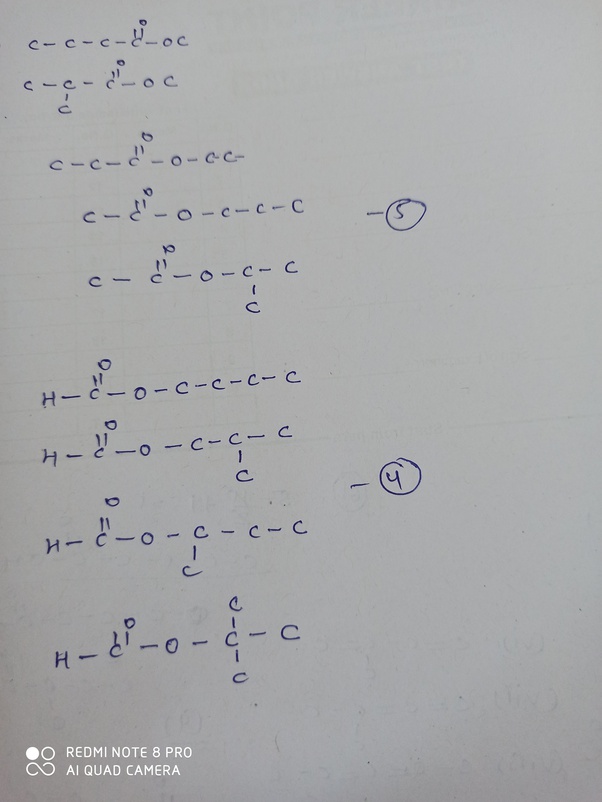 O
C - C - C - C - OC
O
C - C - C - O C
C
O
C - C - C - O - C C -
O
C - C - O - C - C - C - 5
O
C - C - O - C - C
C
O
H - C - O - C - C - C - C
O
H - C - O - C - C - C
C
- 4
O
H - C - O - C - C - C
C
C
O
H - C - O - C - C
C
REDMI NOTE 8 PRO
AI QUAD CAMERA